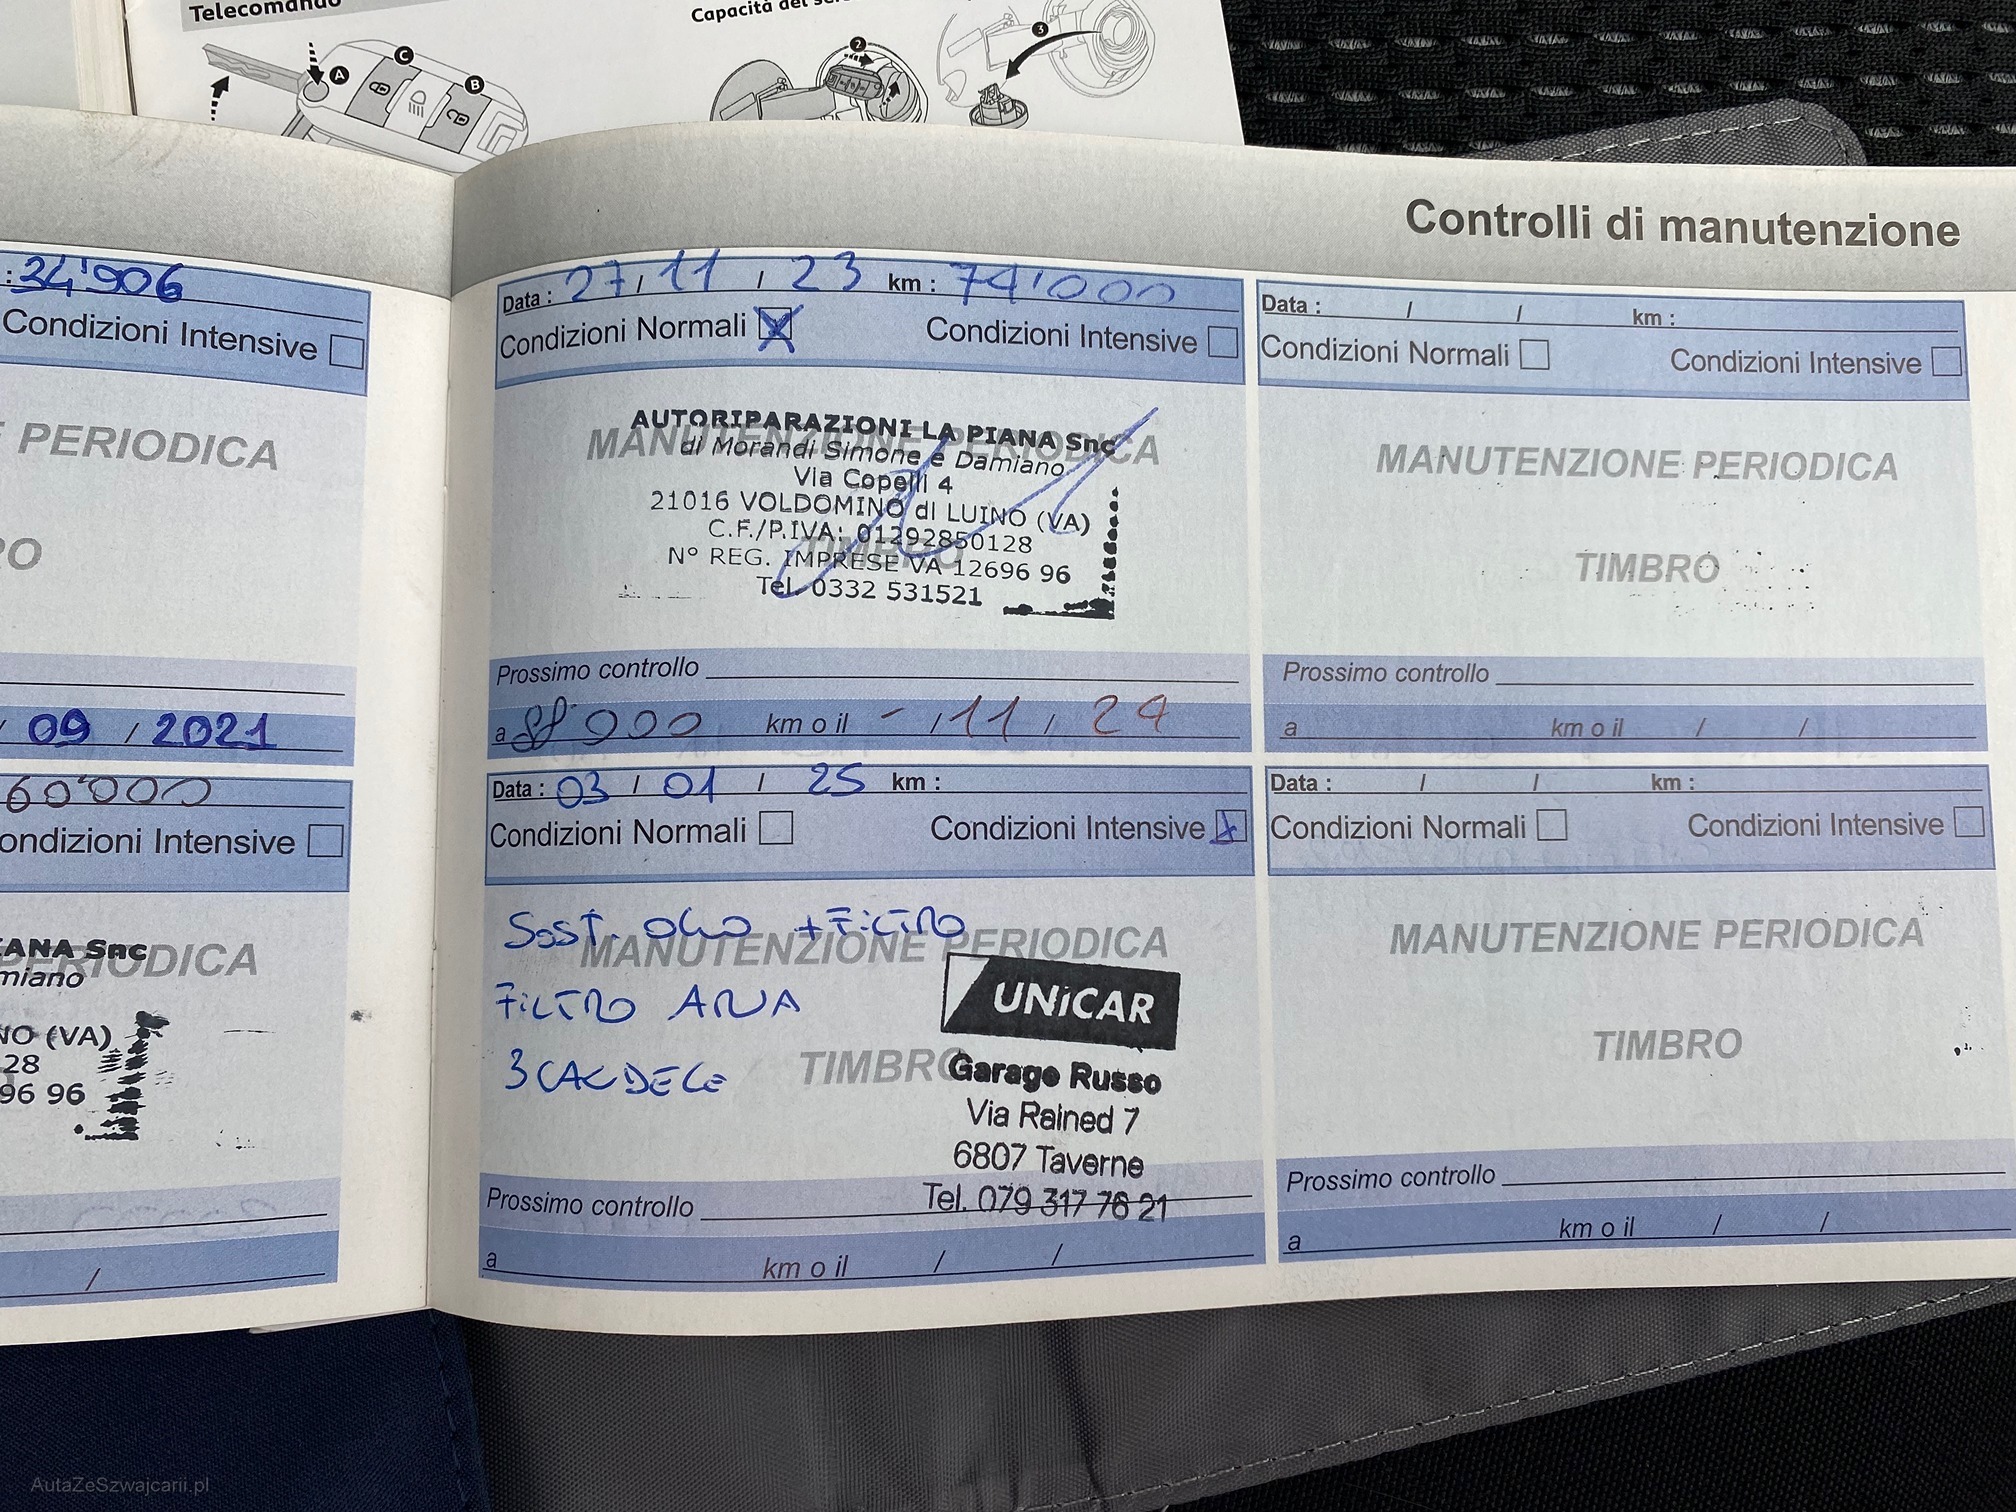 Telecomando
Capacità del
A
C
B
2
3
Controlli di manutenzione
: 34'906
Condizioni Intensive
PERIODICA
/ 09 / 2021
60'000
ondizioni Intensive
IANA Snc
PERIODICA
miano
NO (VA)
28
96 96
/
Data : 27 / 11 / 23 km : 74'000
Condizioni Normali X Condizioni Intensive
MANUTENZIONE PERIODICA
TIMBRO
AUTORIPARAZIONI LA PIANA Snc
di Morandi Simone e Damiano
Via Copelli 4
21016 VOLDOMINO di LUINO (VA)
C.F./P.IVA: 01292850128
N° REG. IMPRESE VA 12696 96
Tel. 0332 531521
Prossimo controllo
a 88'000 km o il - / 11 / 24
Data : 03 / 01 / 25 km :
Condizioni Normali Condizioni Intensive X
MANUTENZIONE PERIODICA
TIMBRO
SOST. OLIO + FILTRO
FILTRO ARIA
3 CANDELE
UNiCAR
Garage Russo
Via Rained 7
6807 Taverne
Tel. 079 317 76 21
Prossimo controllo
a km o il / /
Data : / / km :
Condizioni Normali Condizioni Intensive
MANUTENZIONE PERIODICA
TIMBRO
Prossimo controllo
a km o il / /
Data : / / km :
Condizioni Normali Condizioni Intensive
MANUTENZIONE PERIODICA
TIMBRO
Prossimo controllo
a km o il / /
AutaZeSzwajcarii.pl